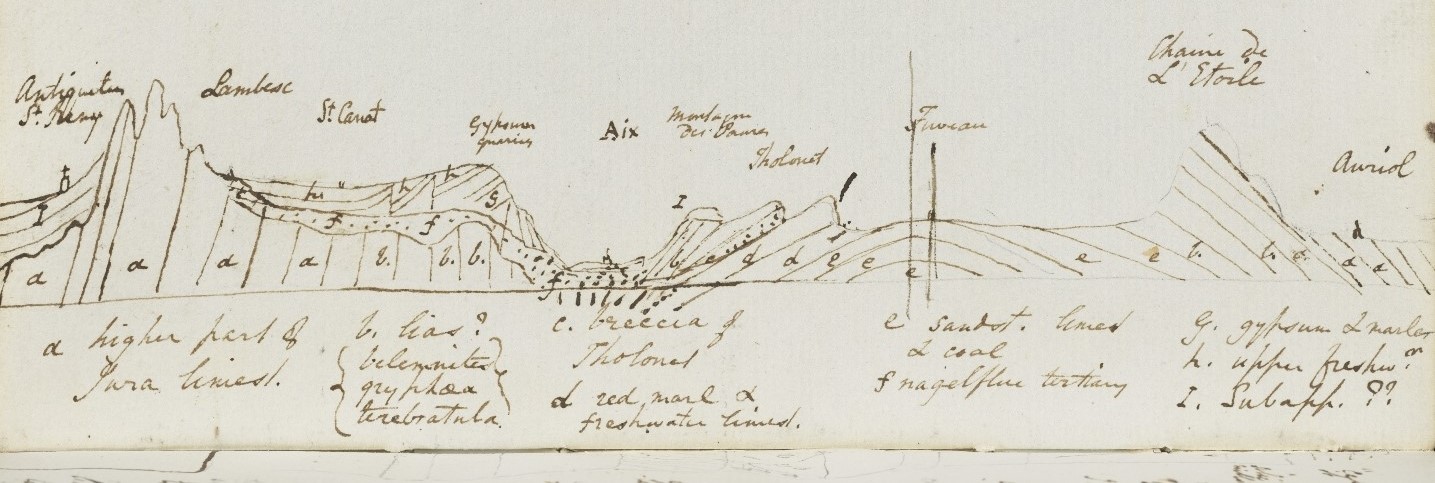 Antiquities
St. Remy
Lambesc
St Canat
Gypsum
quarries
Aix
Montagne
Des Pauvres
Tholonet
Fuveau
Chaine de
L'Etoile
Auriol
h
I
a a a a b. b. b.
h h h
f f g
I
b c d d e e e e e b. b.
d
a a
a higher part of
Jura limest.
b. lias?
belemnites
gryphæa
terebratula
c. breccia of
Tholonet
d red marl &
freshwater limest.
e sandst. limest
& coal
f nagelflue tertiary
G. gypsum & marles
h. upper freshwr.
I. Subapp. ??